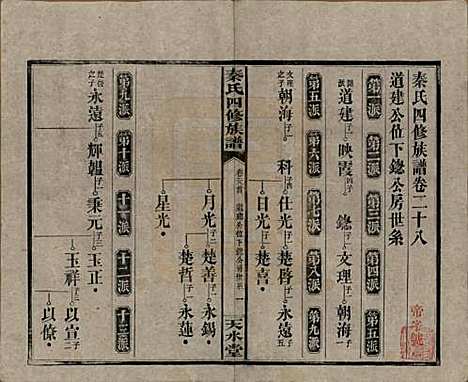 秦氏四修族譜卷二十八
道建公位下鏓公房世系
第一派 第二派 第三派 第四派 第五派
道建 映霞 鏓 文理 朝海
第五派 第六派 第七派 第八派 第九派
文理之子 朝海 科 仕光 楚啓 永遠
日光 楚喜
秦氏四修族譜
天水堂
月光 楚善 永錫
楚哲 永蓮
星光
第九派 第十派 十一派 十二派 十三派
楚啓之子 永遠 輝韞 乘元 玉正
玉祥 以宣
以僚